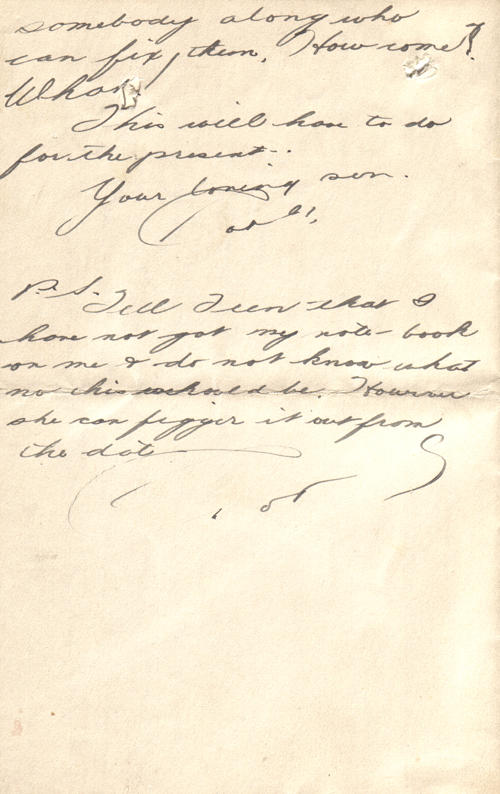 somebody along who
can fix them. How come?
Whar
This will have to do
for the present.
Your loving son.
P.S. Tell Teen that I
have not got my note-book
on me & do not know what
no this should be. However
she can figger it out from
the date